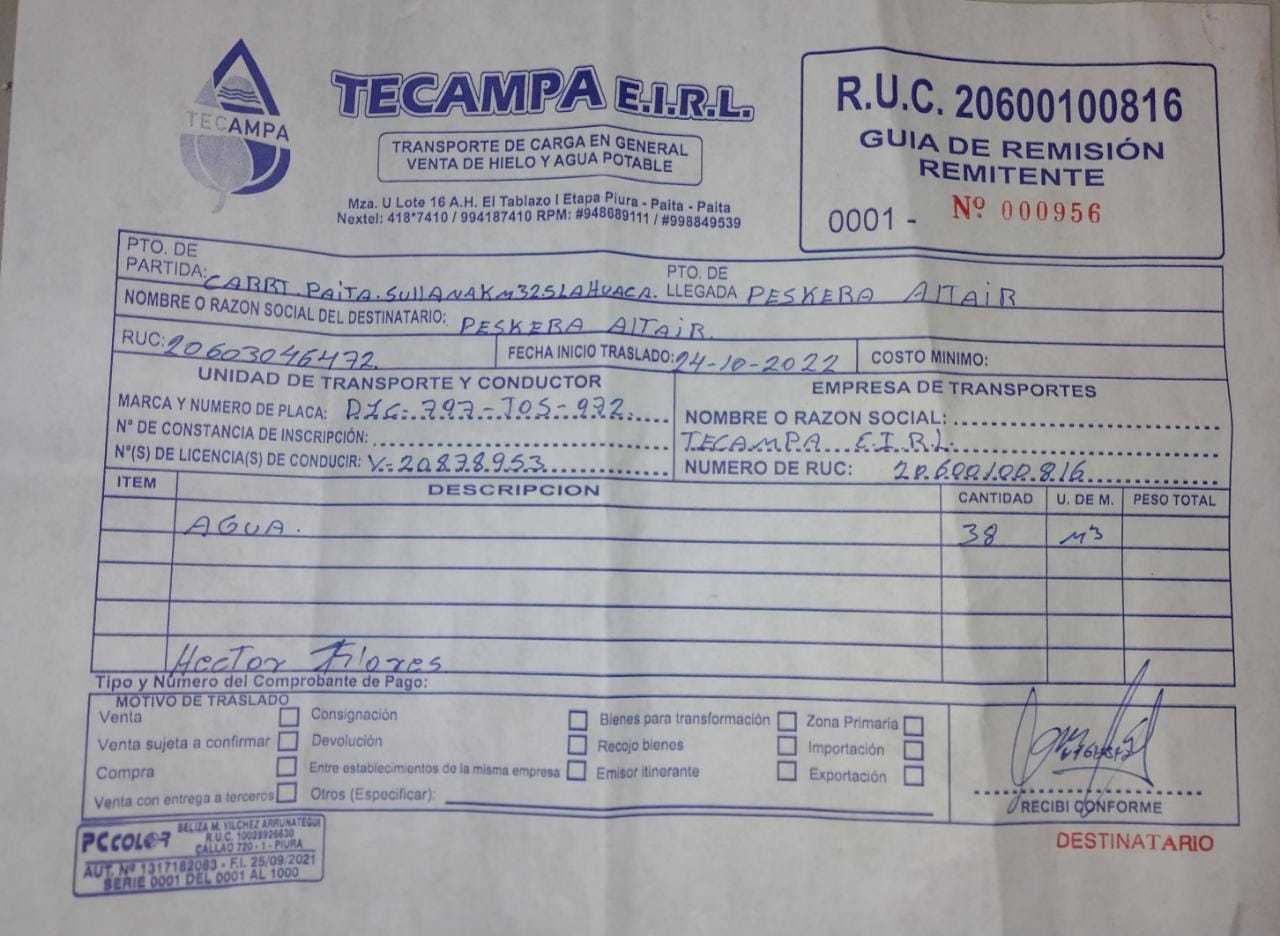 TECAMPA
TECAMPA E.I.R.L.
TRANSPORTE DE CARGA EN GENERAL
VENTA DE HIELO Y AGUA POTABLE
Mza. U Lote 16 A.H. El Tablazo I Etapa Piura - Paita - Paita
Nextel: 418*7410 / 994187410 RPM: #948689111 / #998849539
R.U.C. 20600100816
GUIA DE REMISIÓN
REMITENTE
0001 - Nº 000956
PTO. DE PARTIDA: CARRT. PAITA. SULLANA KM 325 LA HUACA. PTO. DE LLEGADA PESKERA ALTAIR
NOMBRE O RAZON SOCIAL DEL DESTINATARIO: PESKERA ALTAIR.
RUC: 20603046472. FECHA INICIO TRASLADO: 24-10-2022 COSTO MINIMO:
UNIDAD DE TRANSPORTE Y CONDUCTOR
MARCA Y NUMERO DE PLACA: D1C-797-TOS-972.
N° DE CONSTANCIA DE INSCRIPCIÓN:
N°(S) DE LICENCIA(S) DE CONDUCIR: V-20878953
EMPRESA DE TRANSPORTES
NOMBRE O RAZON SOCIAL:
TECAMPA E.I.R.L.
NUMERO DE RUC: 20600100816
ITEM DESCRIPCION CANTIDAD U. DE M. PESO TOTAL
AGUA. 38 M3
Hector Flores
Tipo y Número del Comprobante de Pago:
MOTIVO DE TRASLADO
Venta Consignación Bienes para transformación Zona Primaria
Venta sujeta a confirmar Devolución Recojo bienes Importación
Compra Entre establecimientos de la misma empresa Emisor itinerante Exportación
Venta con entrega a terceros Otros (Especificar):
RECIBI CONFORME
DESTINATARIO
PCCOLOR
BELIZA M. VILCHEZ ARRUNATEGUI
R.U.C. 10028926630
CALLAO 720 - 1 - PIURA
AUT. Nº 1317182083 - F.I. 25/09/2021
SERIE 0001 DEL 0001 AL 1000